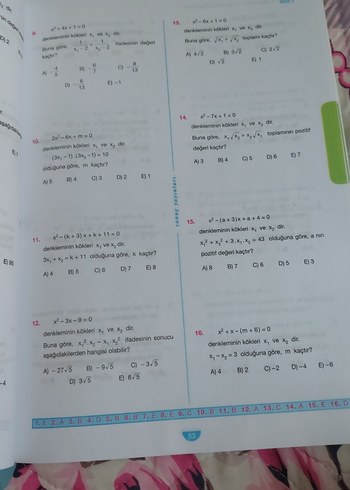 9. x² + 4x + 1 = 0
denkleminin kökleri x₁ ve x₂ dir.
Buna göre, 1/(x₁ − 2) + 1/(x₂ − 2) ifadesinin değeri
kaçtır?
E) −1
10. 2x² − 6x + m = 0
denkleminin kökleri x₁ ve x₂ dir.
(3x₁ − 1) . (3x₂ − 1) = 10
olduğuna göre, m kaçtır?
A) 5 B) 4 C) 3 D) 2 E) 1
11. x² − (k + 3) x + k + 11 = 0
denkleminin kökleri x₁ ve x₂ dir.
3x₁ + x₂ = k + 11 olduğuna göre, k kaçtır?
A) 4 B) 5 C) 6 D) 7 E) 8
12. x² − 3x − 9 = 0
denkleminin kökleri x₁ ve x₂ dir.
Buna göre, x₁² . x₂ − x₁ . x₂² ifadesinin sonucu
aşağıdakilerden hangisi olabilir?
A) −27√5 B) −9√5 C) −3√5
D) 3√5 E) 6√5
sonuç yayınları
13. x² − 6x + 1 = 0
denkleminin kökleri x₁ ve x₂ dir.
Buna göre, √x₁ + √x₂ toplamı kaçtır?
A) 4√2 B) 3√2 C) 2√2
D) √2 E) 1
14. x² − 7x + 1 = 0
denkleminin kökleri x₁ ve x₂ dir.
Buna göre, x₁√x₂ + x₂√x₁ toplamının pozitif
değeri kaçtır?
A) 3 B) 4 C) 5 D) 6 E) 7
15. x² − (a + 3)x + a + 4 = 0
denkleminin kökleri x₁ ve x₂ dir.
x₁² + x₂² + 3 . x₁ . x₂ = 43 olduğuna göre, a nın
pozitif değeri kaçtır?
A) 8 B) 7 C) 6 D) 5 E) 3
16. x² + x − (m + 6) = 0
denkleminin kökleri x₁ ve x₂ dir.
x₁ − x₂ = 3 olduğuna göre, m kaçtır?
A) 4 B) 2 C) −2 D) −4 E) −6
9. C 10. B 11. B 12. A 13. C 14. A 15. E 16. D